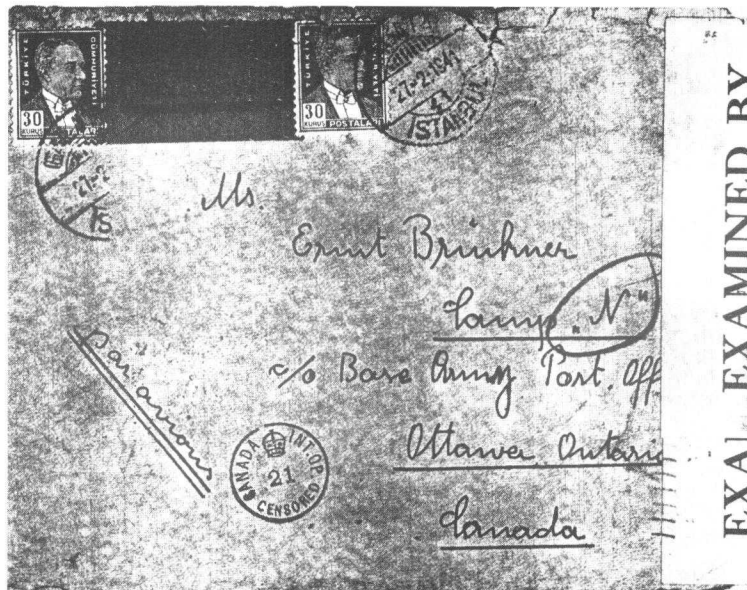 TÜRKİYE CUMHURİYETİ
30
KURUŞ POSTALARI
TÜRKİYE
30
KURUŞ POSTALARI
27-2-1941
İSTANBUL
27-2
İS
Ernst Brückner
Camp „N"
c/o Base Army Post. Off
Ottawa Ontario
Canada
Par avion
CANADA INT. OP.
21
CENSORED
EXA EXAMINED BY